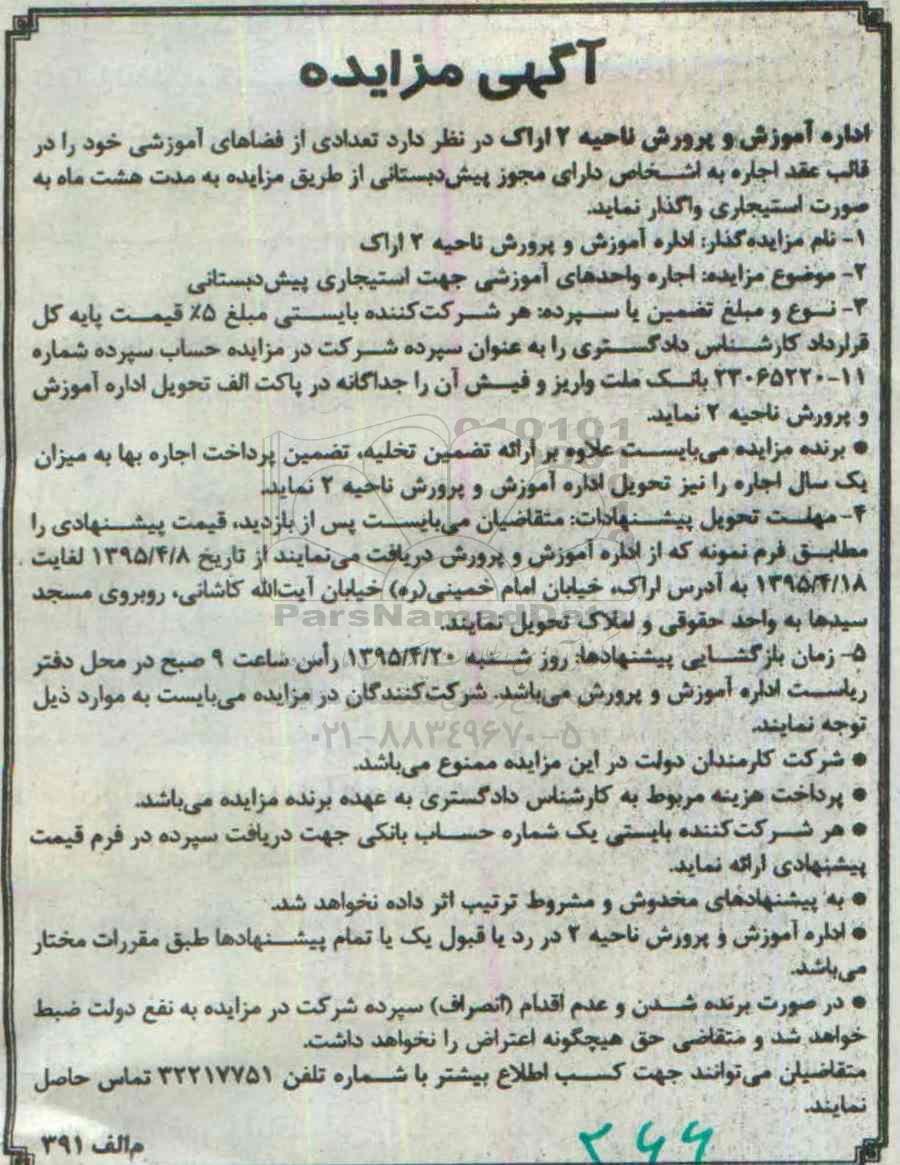 آگهی مزایده
اداره آموزش و پرورش ناحیه ۲ اراک در نظر دارد تعدادی از فضاهای آموزشی خود را در
قالب عقد اجاره به اشخاص دارای مجوز پیش‌دبستانی از طریق مزایده به مدت هشت ماه به
صورت استیجاری واگذار نماید.
۱- نام مزایده‌گذار: اداره آموزش و پرورش ناحیه ۲ اراک
۲- موضوع مزایده: اجاره واحدهای آموزشی جهت استیجاری پیش‌دبستانی
۳- نوع و مبلغ تضمین یا سپرده: هر شرکت‌کننده بایستی مبلغ ۵٪ قیمت پایه کل
قرارداد کارشناس دادگستری را به عنوان سپرده شرکت در مزایده حساب سپرده شماره
۲۳۰۶۵۲۲۰-۱۱ بانک ملت واریز و فیش آن را جداگانه در پاکت الف تحویل اداره آموزش
و پرورش ناحیه ۲ نماید.
● برنده مزایده می‌بایست علاوه بر ارائه تضمین تخلیه، تضمین پرداخت اجاره بها به میزان
یک سال اجاره را نیز تحویل اداره آموزش و پرورش ناحیه ۲ نماید.
۴- مهلت تحویل پیشنهادات: متقاضیان می‌بایست پس از بازدید، قیمت پیشنهادی را
مطابق فرم نمونه که از اداره آموزش و پرورش دریافت می‌نمایند از تاریخ ۱۳۹۵/۴/۸ لغایت
۱۳۹۵/۴/۱۸ به آدرس اراک، خیابان امام خمینی(ره) خیابان آیت‌الله کاشانی، روبروی مسجد
سیدها به واحد حقوقی و املاک تحویل نمایند.
ParsNamadData
۵- زمان بازگشایی پیشنهادها: روز شنبه ۱۳۹۵/۴/۲۰ رأس ساعت ۹ صبح در محل دفتر
ریاست اداره آموزش و پرورش می‌باشد. شرکت‌کنندگان در مزایده می‌بایست به موارد ذیل
توجه نمایند.
۰۲۱-۸۸۳۴۹۶۷۰-۵
● شرکت کارمندان دولت در این مزایده ممنوع می‌باشد.
● پرداخت هزینه مربوط به کارشناس دادگستری به عهده برنده مزایده می‌باشد.
● هر شرکت‌کننده بایستی یک شماره حساب بانکی جهت دریافت سپرده در فرم قیمت
پیشنهادی ارائه نماید.
● به پیشنهادهای مخدوش و مشروط ترتیب اثر داده نخواهد شد.
● اداره آموزش و پرورش ناحیه ۲ در رد یا قبول یک یا تمام پیشنهادها طبق مقررات مختار
می‌باشد.
● در صورت برنده شدن و عدم اقدام (انصراف) سپرده شرکت در مزایده به نفع دولت ضبط
خواهد شد و متقاضی حق هیچگونه اعتراض را نخواهد داشت.
متقاضیان می‌توانند جهت کسب اطلاع بیشتر با شماره تلفن ۳۲۲۱۷۷۵۱ تماس حاصل
نمایند.
م‌الف ۳۹۱
۲۶۶